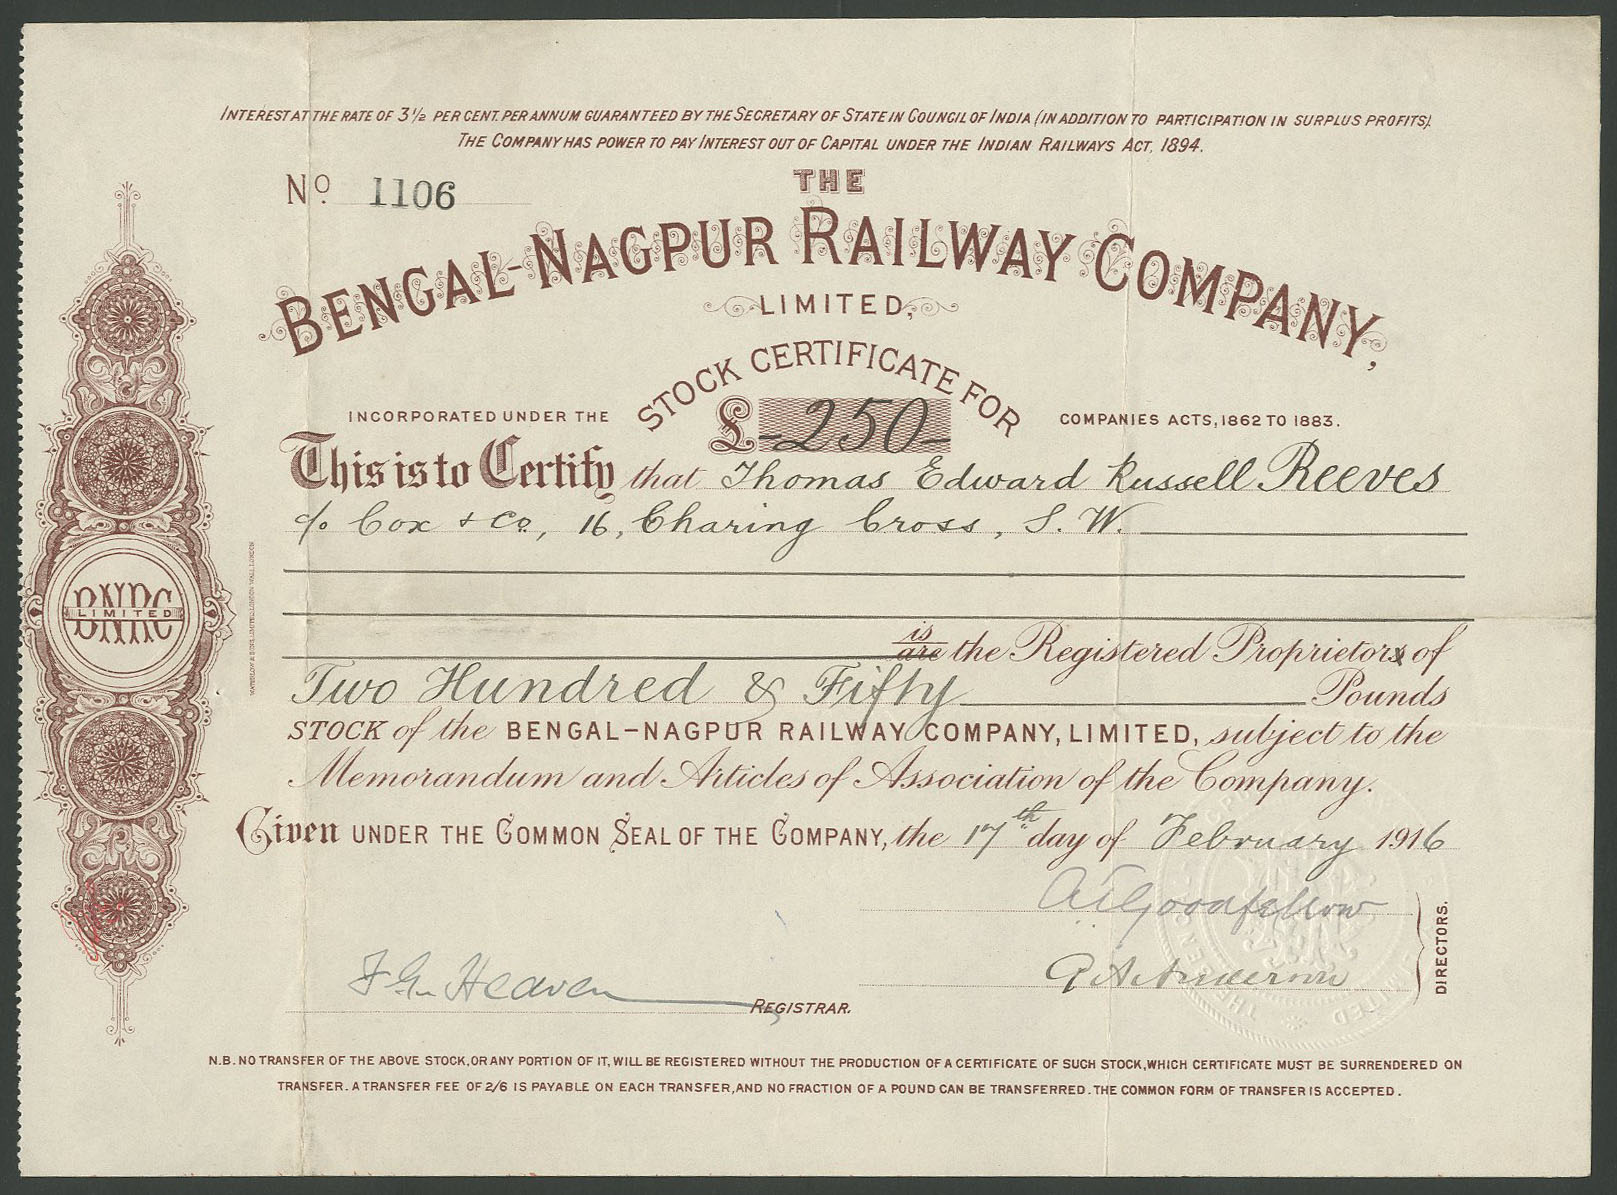 INTEREST AT THE RATE OF 3½ PER CENT. PER ANNUM GUARANTEED BY THE SECRETARY OF STATE IN COUNCIL OF INDIA (IN ADDITION TO PARTICIPATION IN SURPLUS PROFITS).
THE COMPANY HAS POWER TO PAY INTEREST OUT OF CAPITAL UNDER THE INDIAN RAILWAYS ACT, 1894.
No. 1106
THE
BENGAL-NAGPUR RAILWAY COMPANY,
LIMITED,
STOCK CERTIFICATE FOR
INCORPORATED UNDER THE £ 250 COMPANIES ACTS, 1862 TO 1883.
This is to Certify that Thomas Edward Russell Reeves
c/o Cox & Co., 16, Charing Cross, S. W.
is
are the Registered Proprietors of
Two Hundred & Fifty Pounds
STOCK of the BENGAL-NAGPUR RAILWAY COMPANY, LIMITED, subject to the
Memorandum and Articles of Association of the Company.
Given UNDER THE COMMON SEAL OF THE COMPANY, the 17th day of February 1916
Goodfellow
F. G. Heaven
REGISTRAR.
Anderson
DIRECTORS.
N.B. NO TRANSFER OF THE ABOVE STOCK, OR ANY PORTION OF IT, WILL BE REGISTERED WITHOUT THE PRODUCTION OF A CERTIFICATE OF SUCH STOCK, WHICH CERTIFICATE MUST BE SURRENDERED ON
TRANSFER. A TRANSFER FEE OF 2/6 IS PAYABLE ON EACH TRANSFER, AND NO FRACTION OF A POUND CAN BE TRANSFERRED. THE COMMON FORM OF TRANSFER IS ACCEPTED.
BNRC
LIMITED
WATERLOW & SONS LIMITED, LONDON WALL, LONDON